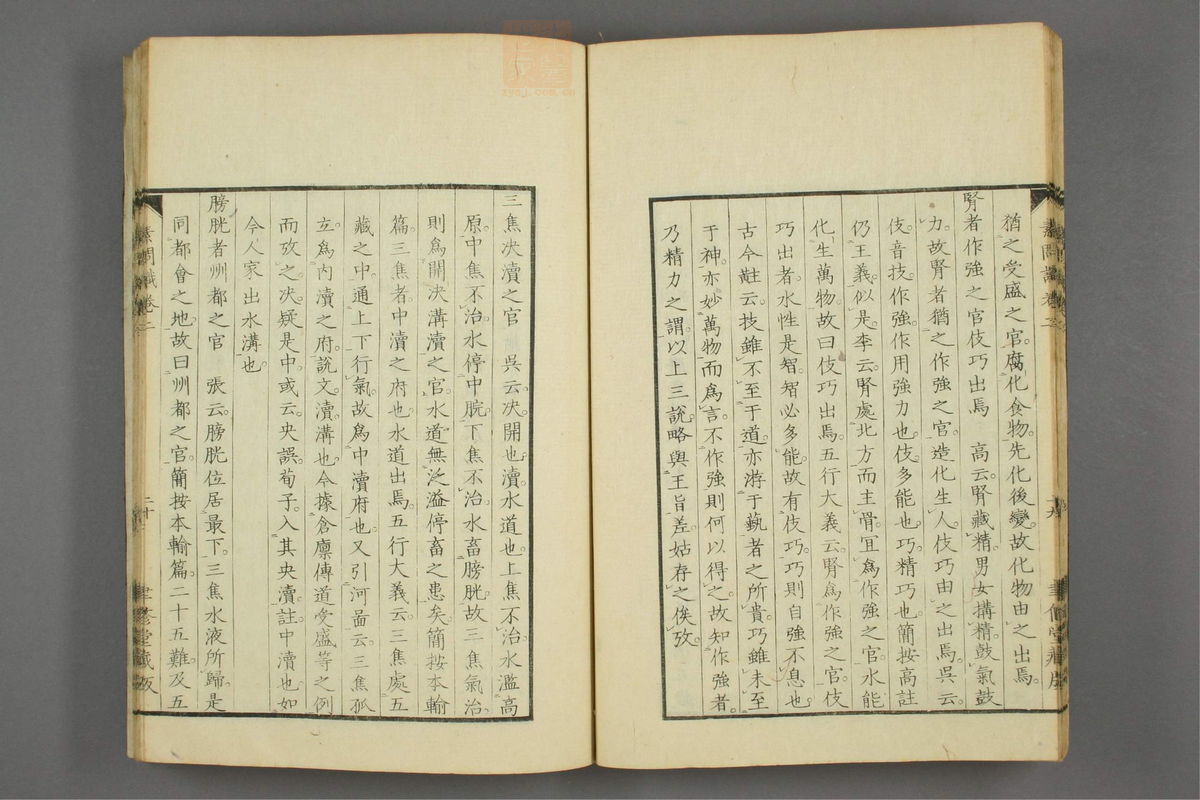 猶之受盛之官腐化食物先化後變故化物由之出焉
腎者作強之官伎巧出焉　高云腎藏精男女搆精鼓氣鼓
力故腎者猶之作強之官造化生人伎巧由之出焉吳云
伎音技作強作用強力也伎多能也巧精巧也簡按高註
仍王義似是李云腎處北方而主骨宜爲作強之官水能
化生萬物故曰伎巧出焉五行大義云腎爲作強之官伎
巧出者水性是智智必多能故有伎巧巧則自強不息也
古今㽹云技雖不至于道亦游于藝者之所貴巧雖未至
于神亦妙萬物而爲言不作強則何以得之故知作強者
乃精力之謂以上三說略與王旨差姑存之俟攷
三焦決瀆之官　吳云決開也瀆水道也上焦不治水濫高
原中焦不治水停中脘下焦不治水畜膀胱故三焦氣治
則爲開決溝瀆之官水道無泛溢停畜之患矣簡按本輸
篇三焦者中瀆之府也水道出焉五行大義云三焦處五
藏之中通上下行氣故爲中瀆府也又引河啚云三焦孤
立爲內瀆之府說文瀆溝也今據倉廩傳道受盛等之例
而攷之決疑是中或云央誤荀子入其央瀆註中瀆也如
今人家出水溝也
膀胱者州都之官　張云膀胱位居最下三焦水液所歸是
同都會之地故曰州都之官簡按本輸篇二十五難及五
素問識卷二
二十
聿修堂藏版